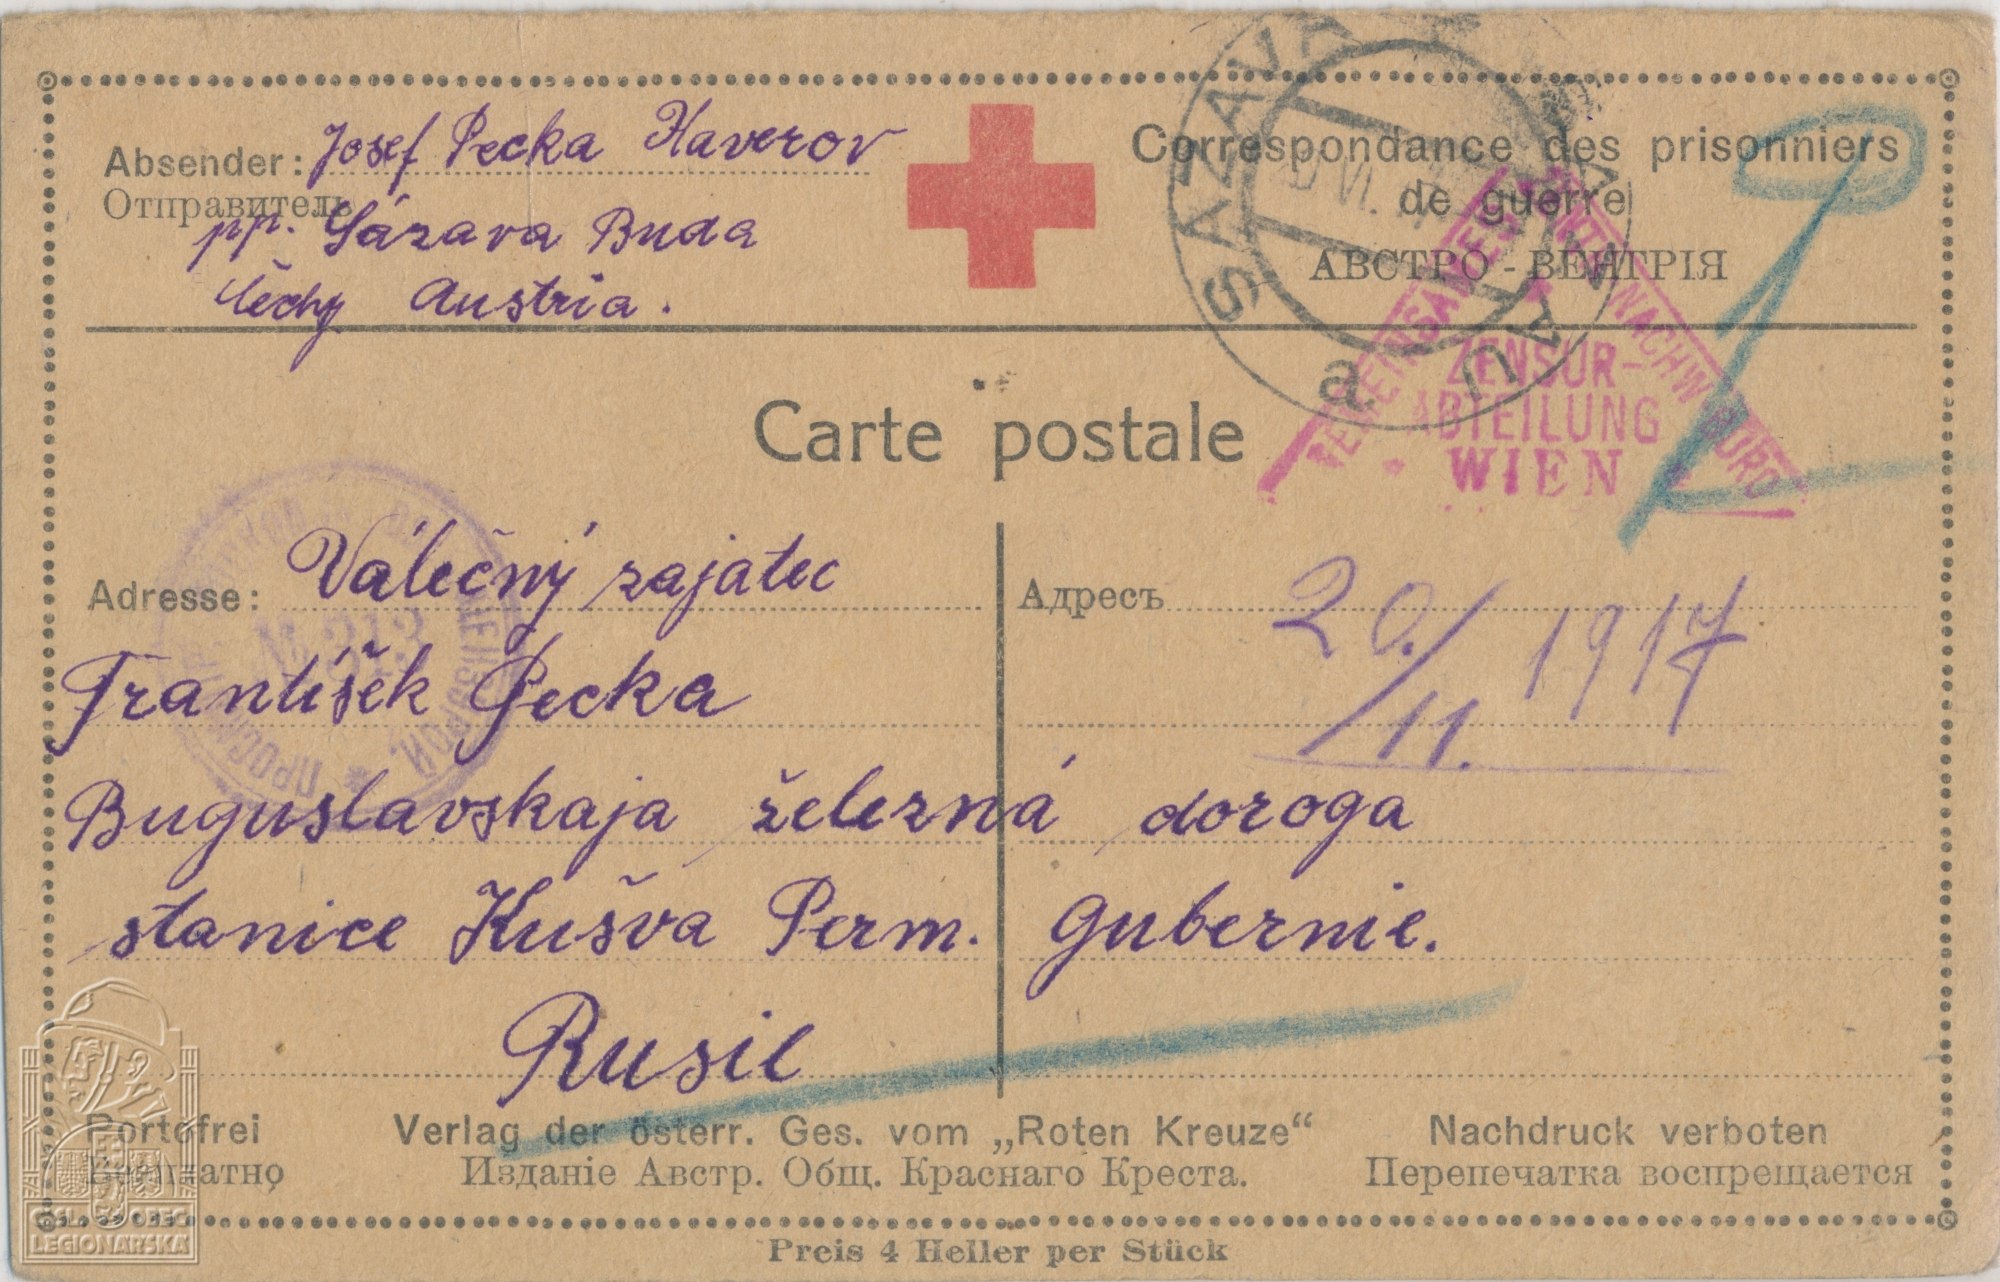 Absender: Josef Pecka Xaverov
Отправитель
pp. Sázava Buda
Čechy Austria.
Correspondance des prisonniers
de guerre
АВСТРО - ВЕНГРІЯ
SAZAVA
a
ZENSUR-
ABTEILUNG
WIEN
Carte postale
Adresse: Válečný zajatec
František Pecka
Buguslavskaja železná doroga
stanice Kušva Perm. Gubernie.
Rusie
Адресъ
20./11. 1917
Portofrei
Безплатно
Verlag der österr. Ges. vom „Roten Kreuze“
Изданіе Австр. Общ. Краснаго Креста.
Nachdruck verboten
Перепечатка воспрещается
Preis 4 Heller per Stück
ČSL. OBEC
LEGIONÁŘSKÁ